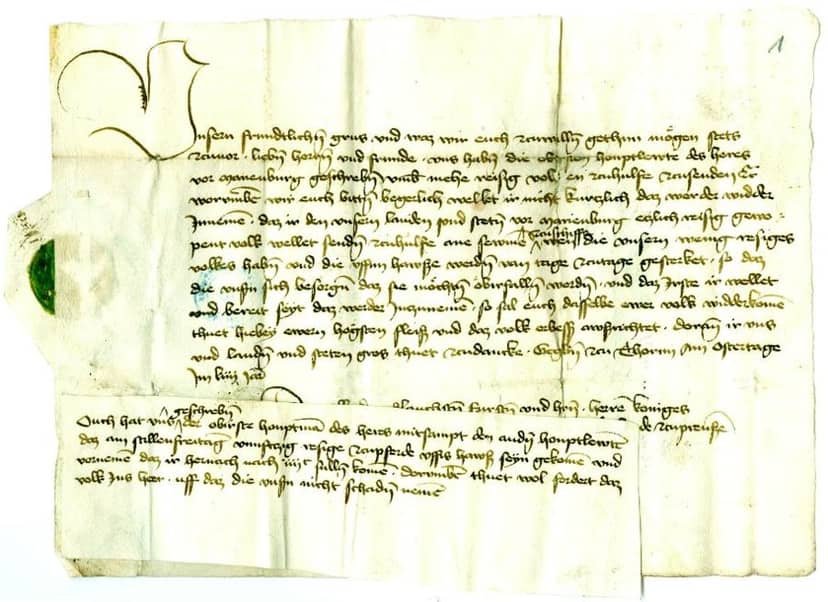 1
Unsern fruntlichen grus und waz wir euch czuwillen gethun mögen stets
czuvor liben herren und frunde uns haben die obirsten houptlewte des heres
vor marienburg geschreben umb mehe reisig volk en czuhulfe czusenden
worumbe wir euch bitten begerlich wellet ir nicht kurtzlich daz werder widder
Innemen daz ir den unsern landen und steten vor marienburg etzlich reisig gewo-
pent volk wellet senden czuhulfe ane sewmen wenn die unsern wenig reisiges
czuschiffe
volkes haben und die uffm hawsze werden van tage czutage gesterket so daz
die unsern sich besorgen daz sie möchten obirfallen werden und daz irste ir wellet
und bereit seyt daz werder Inczunemen so sal euch dasselbe ewer volk widderkomen
thuet hiebey ewern hogsten fleisz und daz volk awsrichtet doran ir uns
und landen und steten gros thuet czudancke Geben czu Thorun Am Ostertage
Im liiij Jar
und hern herren koniges
de czuprewsen
Ouch hat uns geschreben der obirste houptman des heres mitsampt den andern houptlewten
daz am stillenfreitag reisige czupferde uffs hawsz seyn gekomen und
vornemen daz ir hernach nach sullen komen dorumbe thuet wol fordert daz
volk Ins heer uff daz die unsern nicht schaden nemen